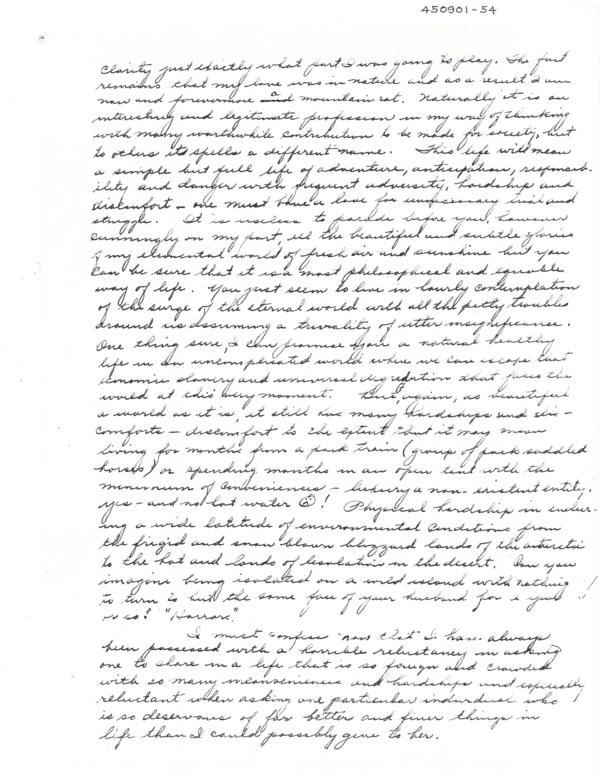 450901-54
clarity just exactly what part I was going to play. The fact
remains that my love was in nature and as a result I am
now and forevermore a mountain rat. Naturally it is an
interesting and legitimate profession in my way of thinking
with many worthwhile contribution to be made for society, but
to others its spells a different name. This life will mean
a simple but full life of adventure, anticipation, responsib-
ility and danger with frequent adversity, hardship and
discomfort - one must have a love for unnecessary toil and
struggle. It is useless to parade before you, however
cunningly on my part, all the beautiful and subtle glories
of my elemental world of fresh air and sunshine but you
can be sure that it is a most philosophical and equable
way of life. You just seem to live in hourly contemplation
of the surge of the eternal world with all the petty troubles
around us assuming a triviality of utter insignificance.
One thing sure, I can promise you a natural healthy
life in an uncomplicated world where we can escape that
economic slavery and universal degredation that faces the
world at this very moment. But, again, as beautiful
a world as it is, it still has many hardships and dis-
comforts - discomfort to the extent that it may mean
living for months from a pack train (group of pack saddled
horses) or spending months in an open tent with the
minimum of conveniences - luxury a non-existent entity.
yes - and no hot water ! Physical hardship in endur-
ing a wide latitude of environmental conditions from
the frigid and snow blown blizzard lands of the antarctic
to the hot and lands of desolation in the desert. Can you
imagine being isolated on a wild island with nothing
to turn to but the same face of your husband for a year !
or so? "Horrors".
I must confess now that I have always
been possessed with a horrible reluctancy in asking
one to share in a life that is so foreign and crowded
with so many inconveniences and hardships and especially
reluctant when asking one particular individual who !
is so deservous of far better and finer things in
life than I could possibly give to her.